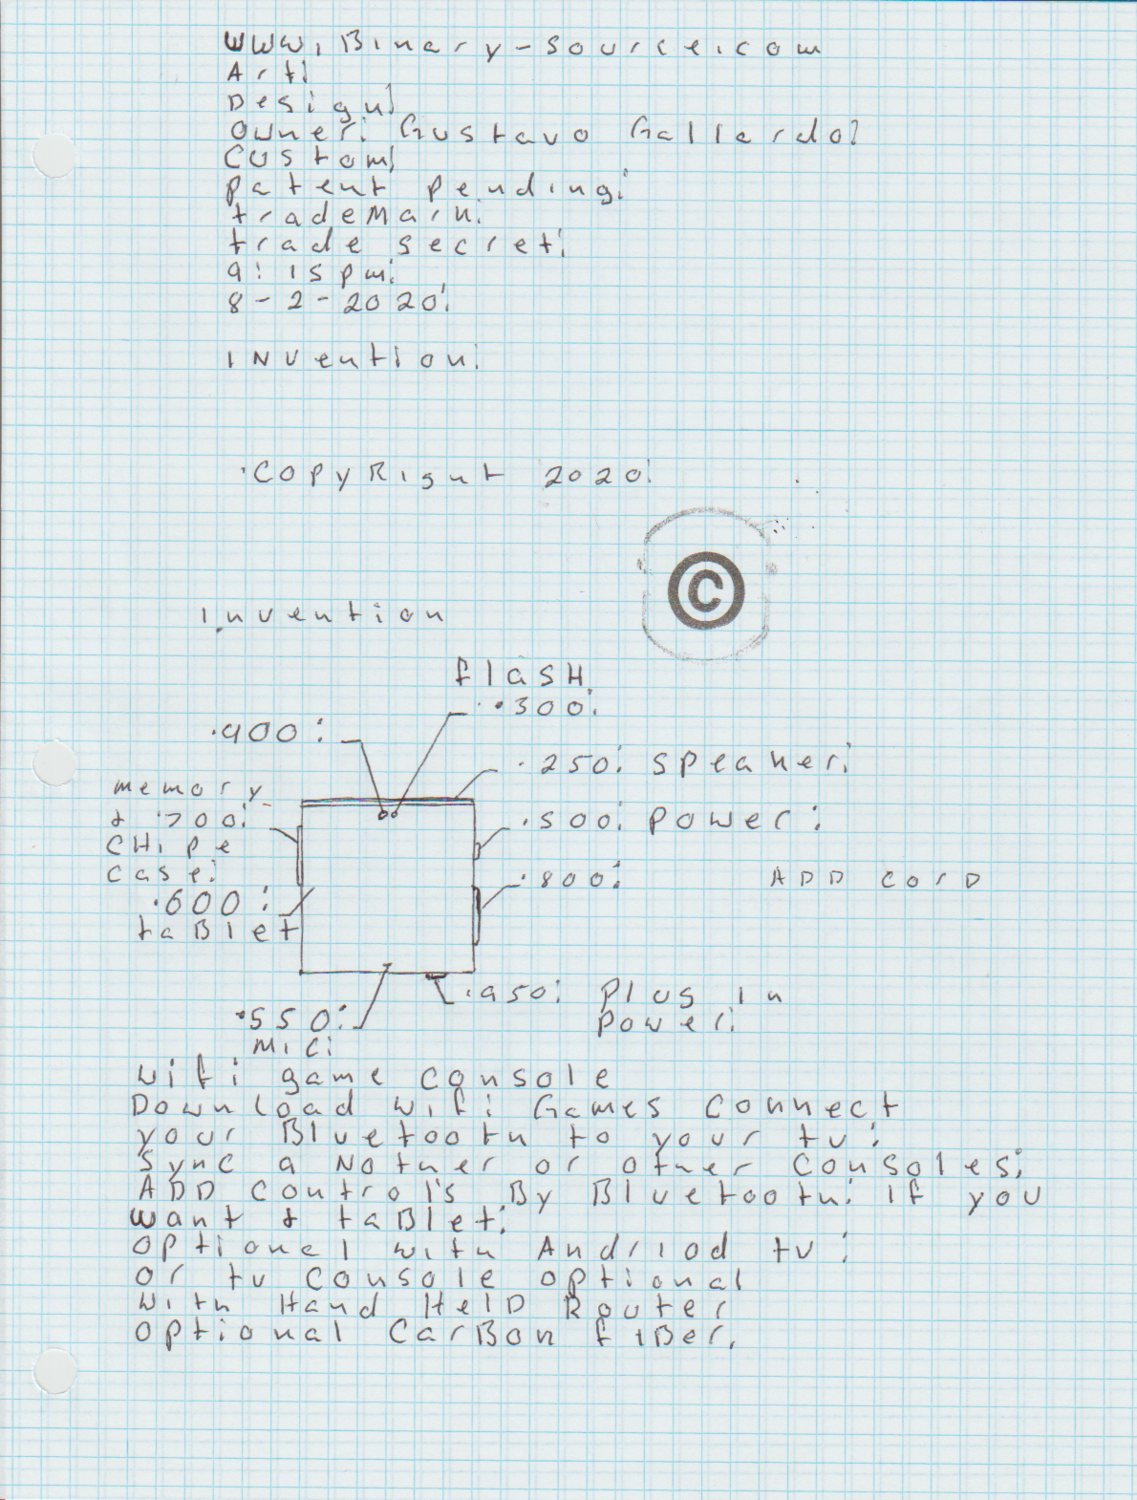 www.Binary-source.com
Art!
Design!
Owner: Gustavo Gallardo!
Custom!
Patent Pending:
trademark:
trade secret:
9:15pm:
8-2-2020:
INvention:
.CopyRight 2020:
©
Invention
flasH
.300:
.900:
.250: speaker:
memory
& .700:
CHipe
case:
.500: power:
.800:
ADD cord
.600:
taBlet
.950: Plug in
Power:
.550:
Mic:
wifi game console
Download wifi Games connect
your Bluetooth to your tv:
Sync a Nother or other consoles:
ADD control's By Bluetooth: if you
want & taBlet:
optional with Andriod tv:
or tv console optional
with Hand HelD Router
optional CarBon fiBer.